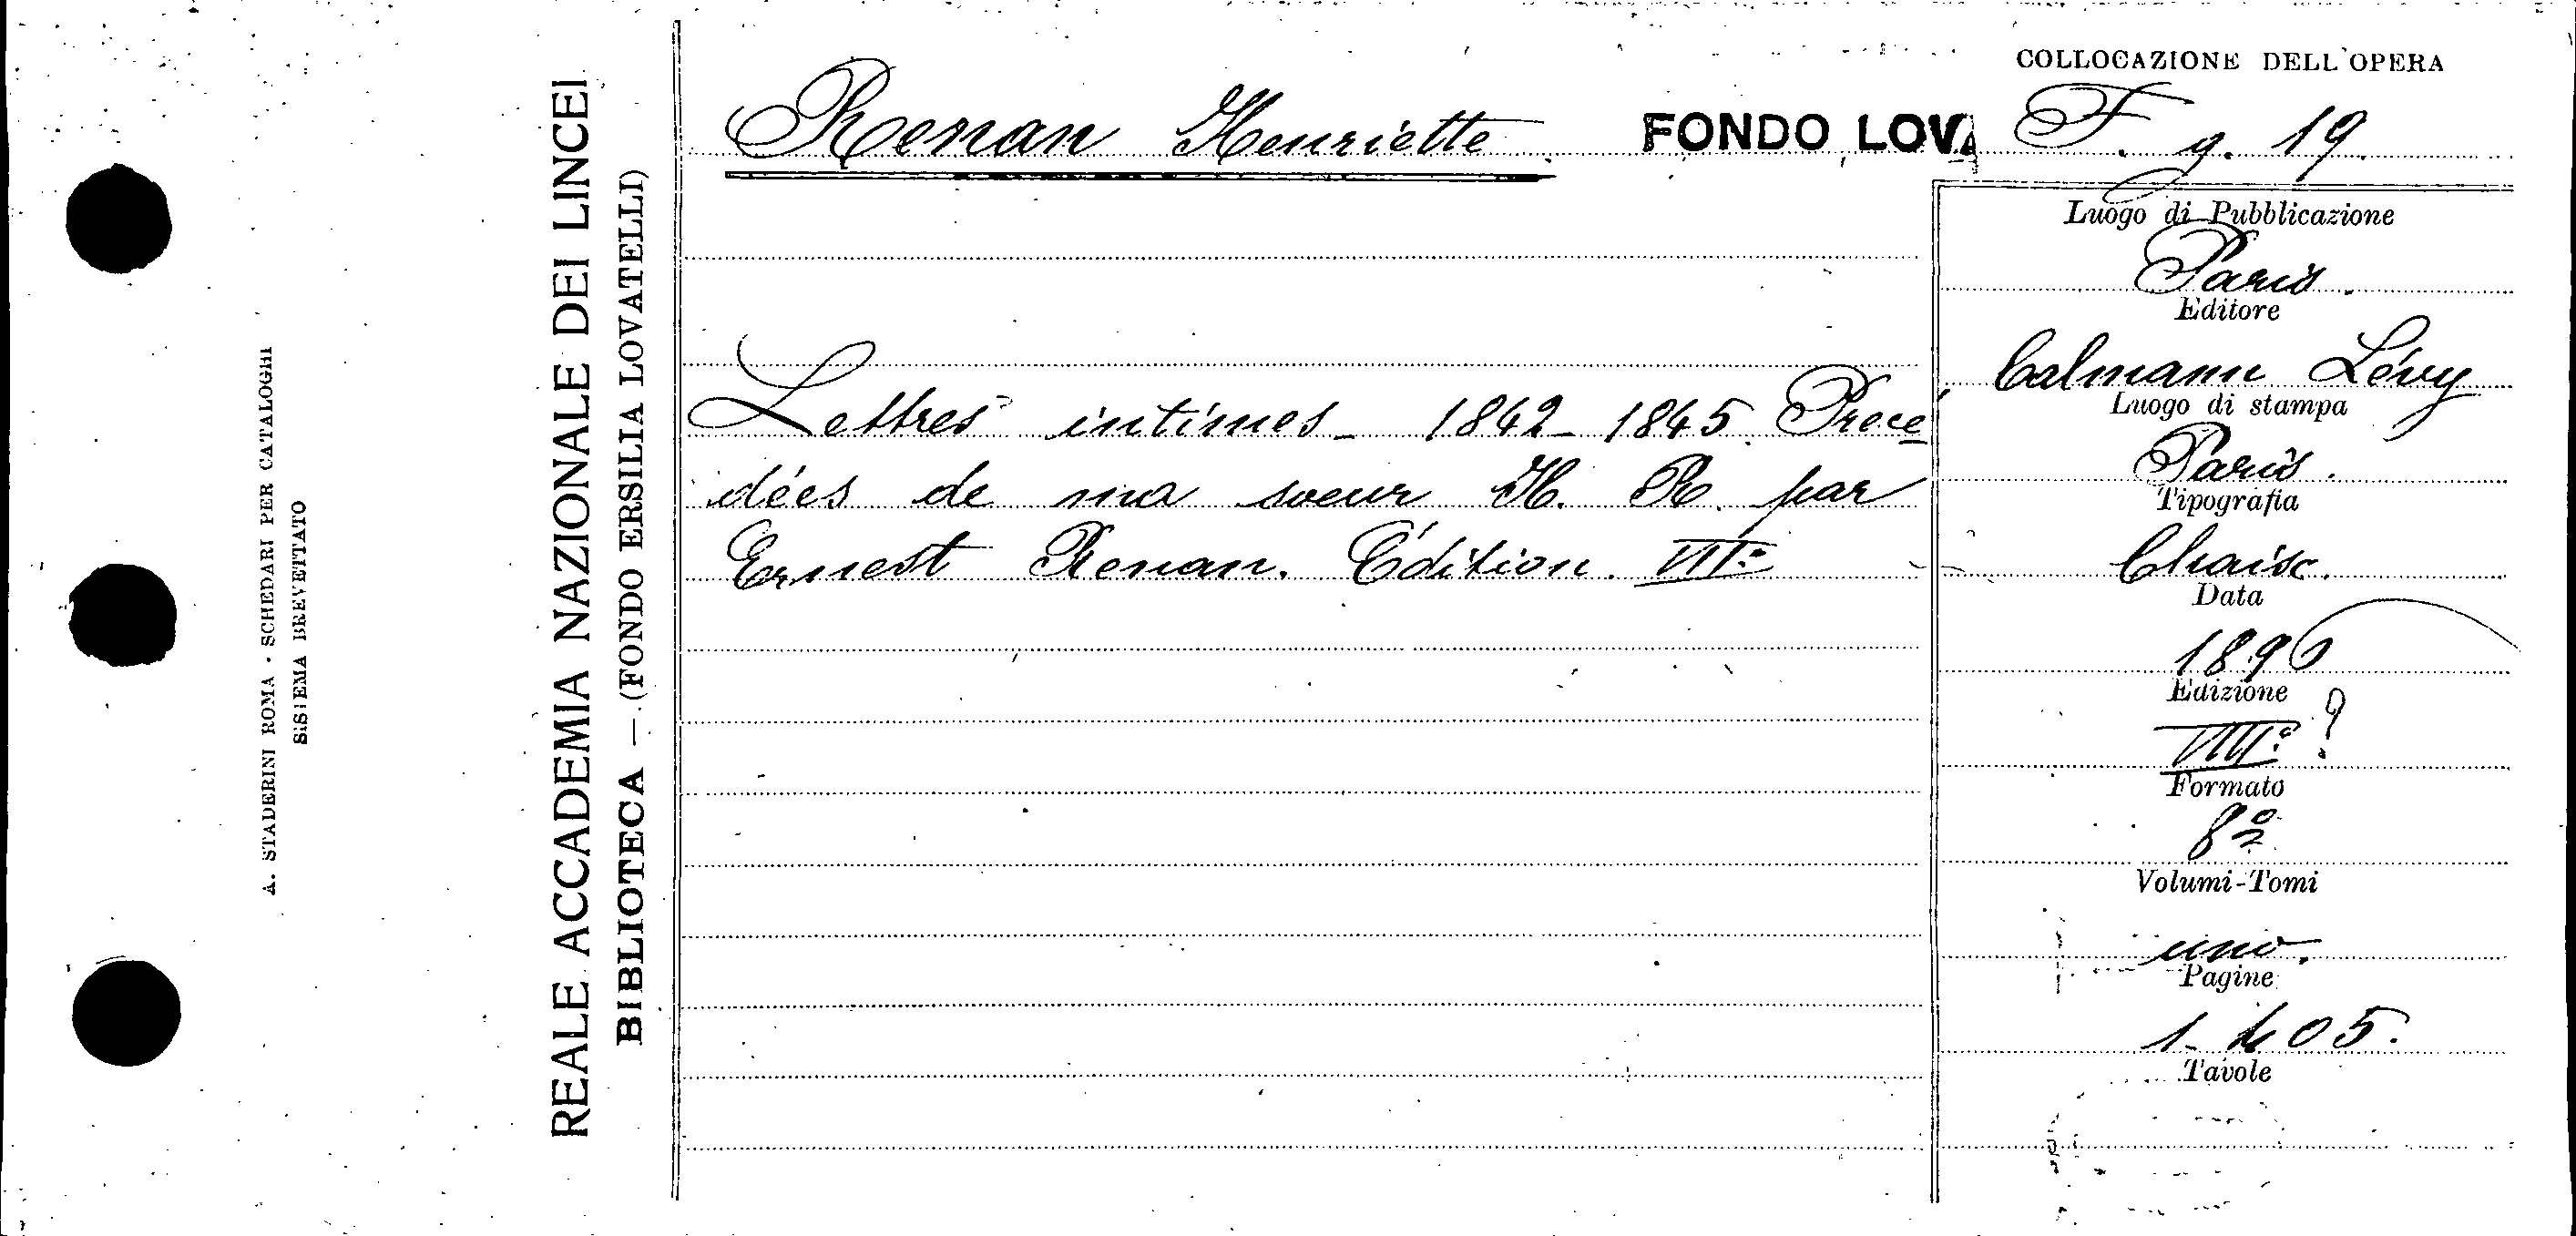 A. STADERINI ROMA - SCHEDARI PER CATALOGHI
SISTEMA BREVETTATO
REALE ACCADEMIA NAZIONALE DEI LINCEI
BIBLIOTECA — (FONDO ERSILIA LOVATELLI)
COLLOCAZIONE DELL'OPERA
Renan Henriette FONDO LOVA F. g. 19
Luogo di Pubblicazione
Paris.
Editore
Calmann Lévy
Luogo di stampa
Paris.
Tipografia
Chaix.
Data
1896
Edizione
VIIIº ?
Formato
8º
Volumi-Tomi
uno.
Pagine
1-405.
Tavole
Lettres intimes - 1842-1845. Precé
dées de ma soeur H. R. par
Ernest Renan. Édition. VIIº